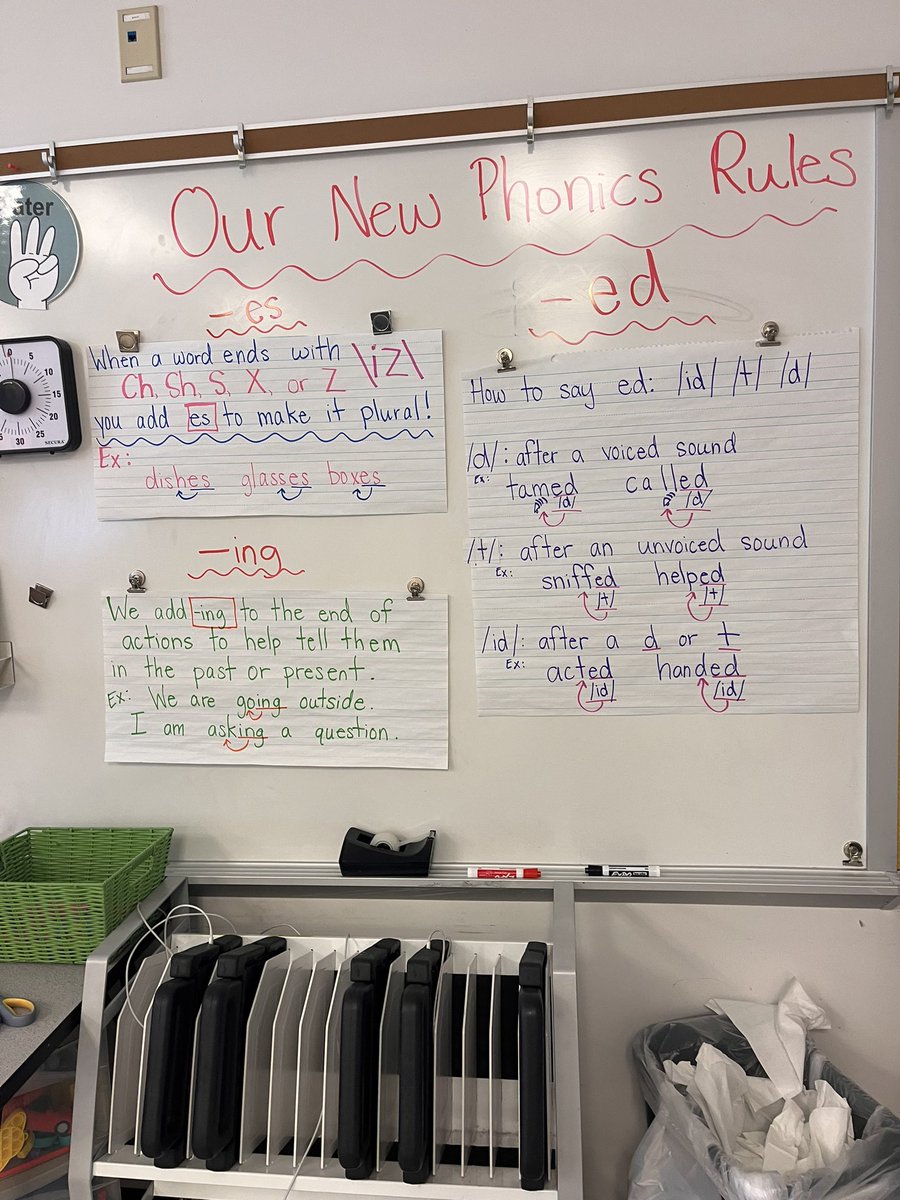 Our New Phonics Rules
-es
When a word ends with \iz\
Ch, Sh, S, X, or Z
you add es to make it plural!
Ex:
dishes glasses boxes
-ing
We add -ing to the end of
actions to help tell them
in the past or present.
Ex: We are going outside.
I am asking a question.
-ed
How to say ed: /id/ /t/ /d/
/d/: after a voiced sound
Ex: tamed called
/d/ /d/
/t/: after an unvoiced sound
Ex: sniffed helped
/t/ /t/
/id/: after a d or t
Ex: acted handed
/id/ /id/
ater
0
5
10
15
20
25
30
SECURA
EXPO